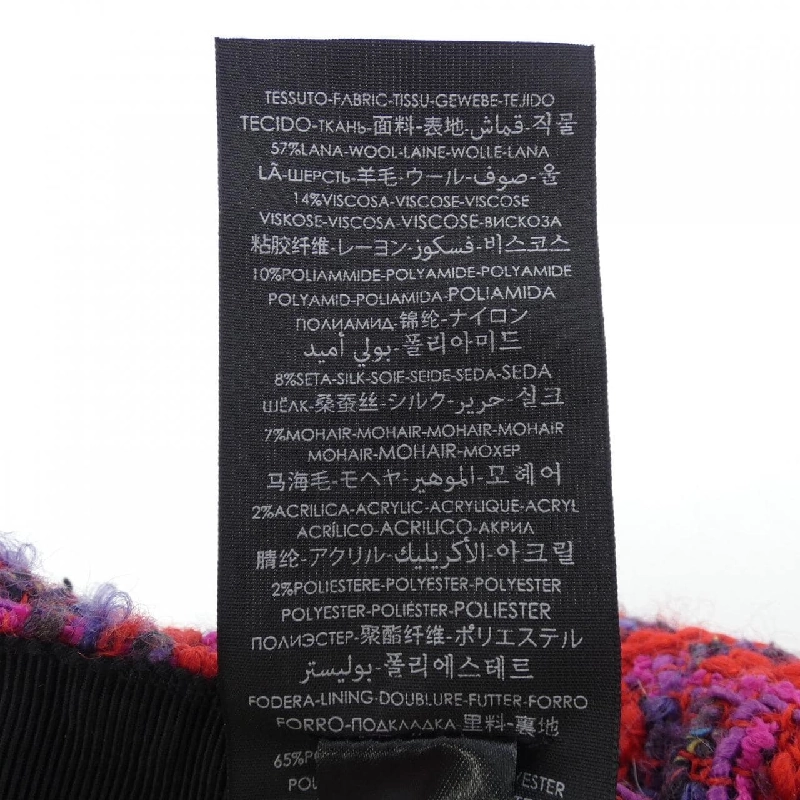 TESSUTO-FABRIC-TISSU-GEWEBE-TEJIDO
TECIDO-ТКАНЬ-面料-表地-قماش-직물
57%LANA-WOOL-LAINE-WOLLE-LANA
LÃ-ШЕРСТЬ-羊毛-ウール-صوف-울
14%VISCOSA-VISCOSE-VISCOSE
VISKOSE-VISCOSA-VISCOSE-ВИСКОЗА
粘胶纤维-レーヨン-فسكوز-비스코스
10%POLIAMMIDE-POLYAMIDE-POLYAMIDE
POLYAMID-POLIAMIDA-POLIAMIDA
ПОЛИАМИД-锦纶-ナイロン
بولي أميد-폴리아미드
8%SETA-SILK-SOIE-SEIDE-SEDA-SEDA
ШЁЛК-桑蚕丝-シルク-حرير-실크
7%MOHAIR-MOHAIR-MOHAIR-MOHAIR
MOHAIR-MOHAIR-МОХЕР
马海毛-モヘヤ-الموهير-모헤어
2%ACRILICA-ACRYLIC-ACRYLIQUE-ACRYL
ACRÍLICO-ACRILICO-АКРИЛ
腈纶-アクリル-الأكريليك-아크릴
2%POLIESTERE-POLYESTER-POLYESTER
POLYESTER-POLIÉSTER-POLIESTER
ПОЛИЭСТЕР-聚酯纤维-ポリエステル
بوليستر-폴리에스테르
FODERA-LINING-DOUBLURE-FUTTER-FORRO
FORRO-ПОДКЛАДКА-里料-裏地
65%P
POL YESTER